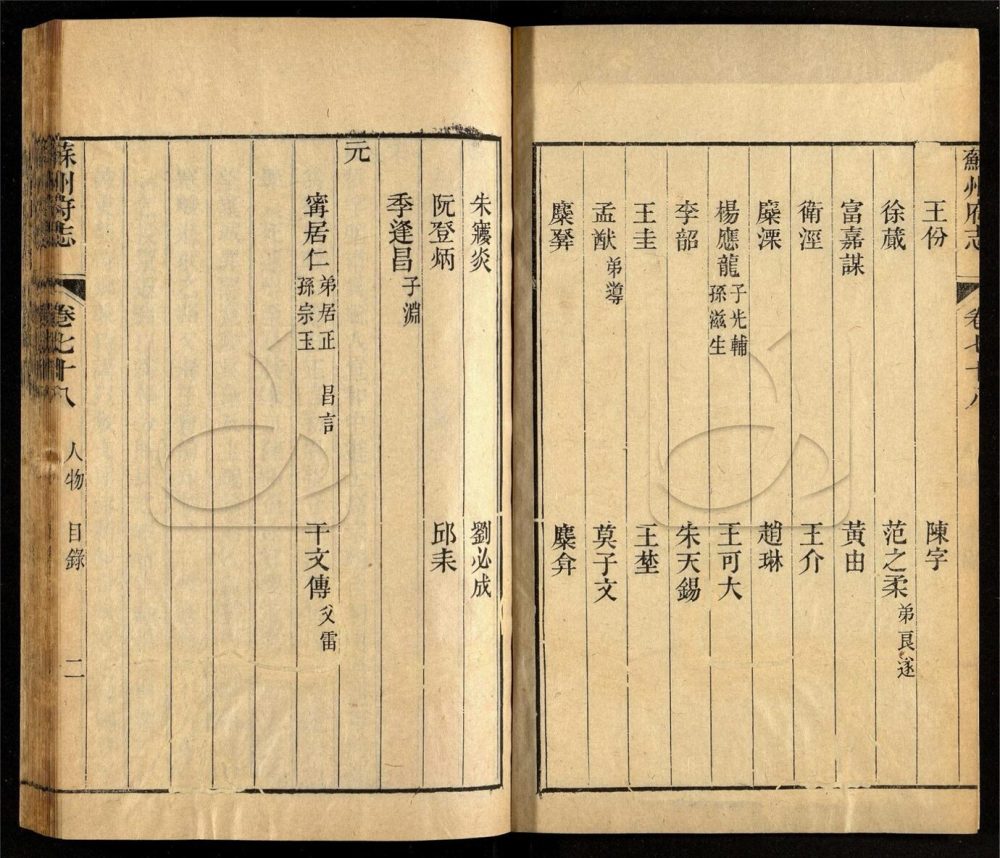 蘇州府志 卷七十八
王份 陳宇
徐蕆 范之柔 弟良遂
富嘉謀 黃由
衛涇 王介
糜溧 趙琳
楊應龍 子光輔 孫滋生 王可大
李韶 朱天錫
王圭 王埜
孟猷 弟導 莫子文
糜弇
朱 炎 劉必成
阮登炳 邱耒
季逢昌 子淵
元
甯居仁 弟居正 孫宗玉 昌言 干文傳 父雷
蘇州府志 卷七十八 人物 目錄 二